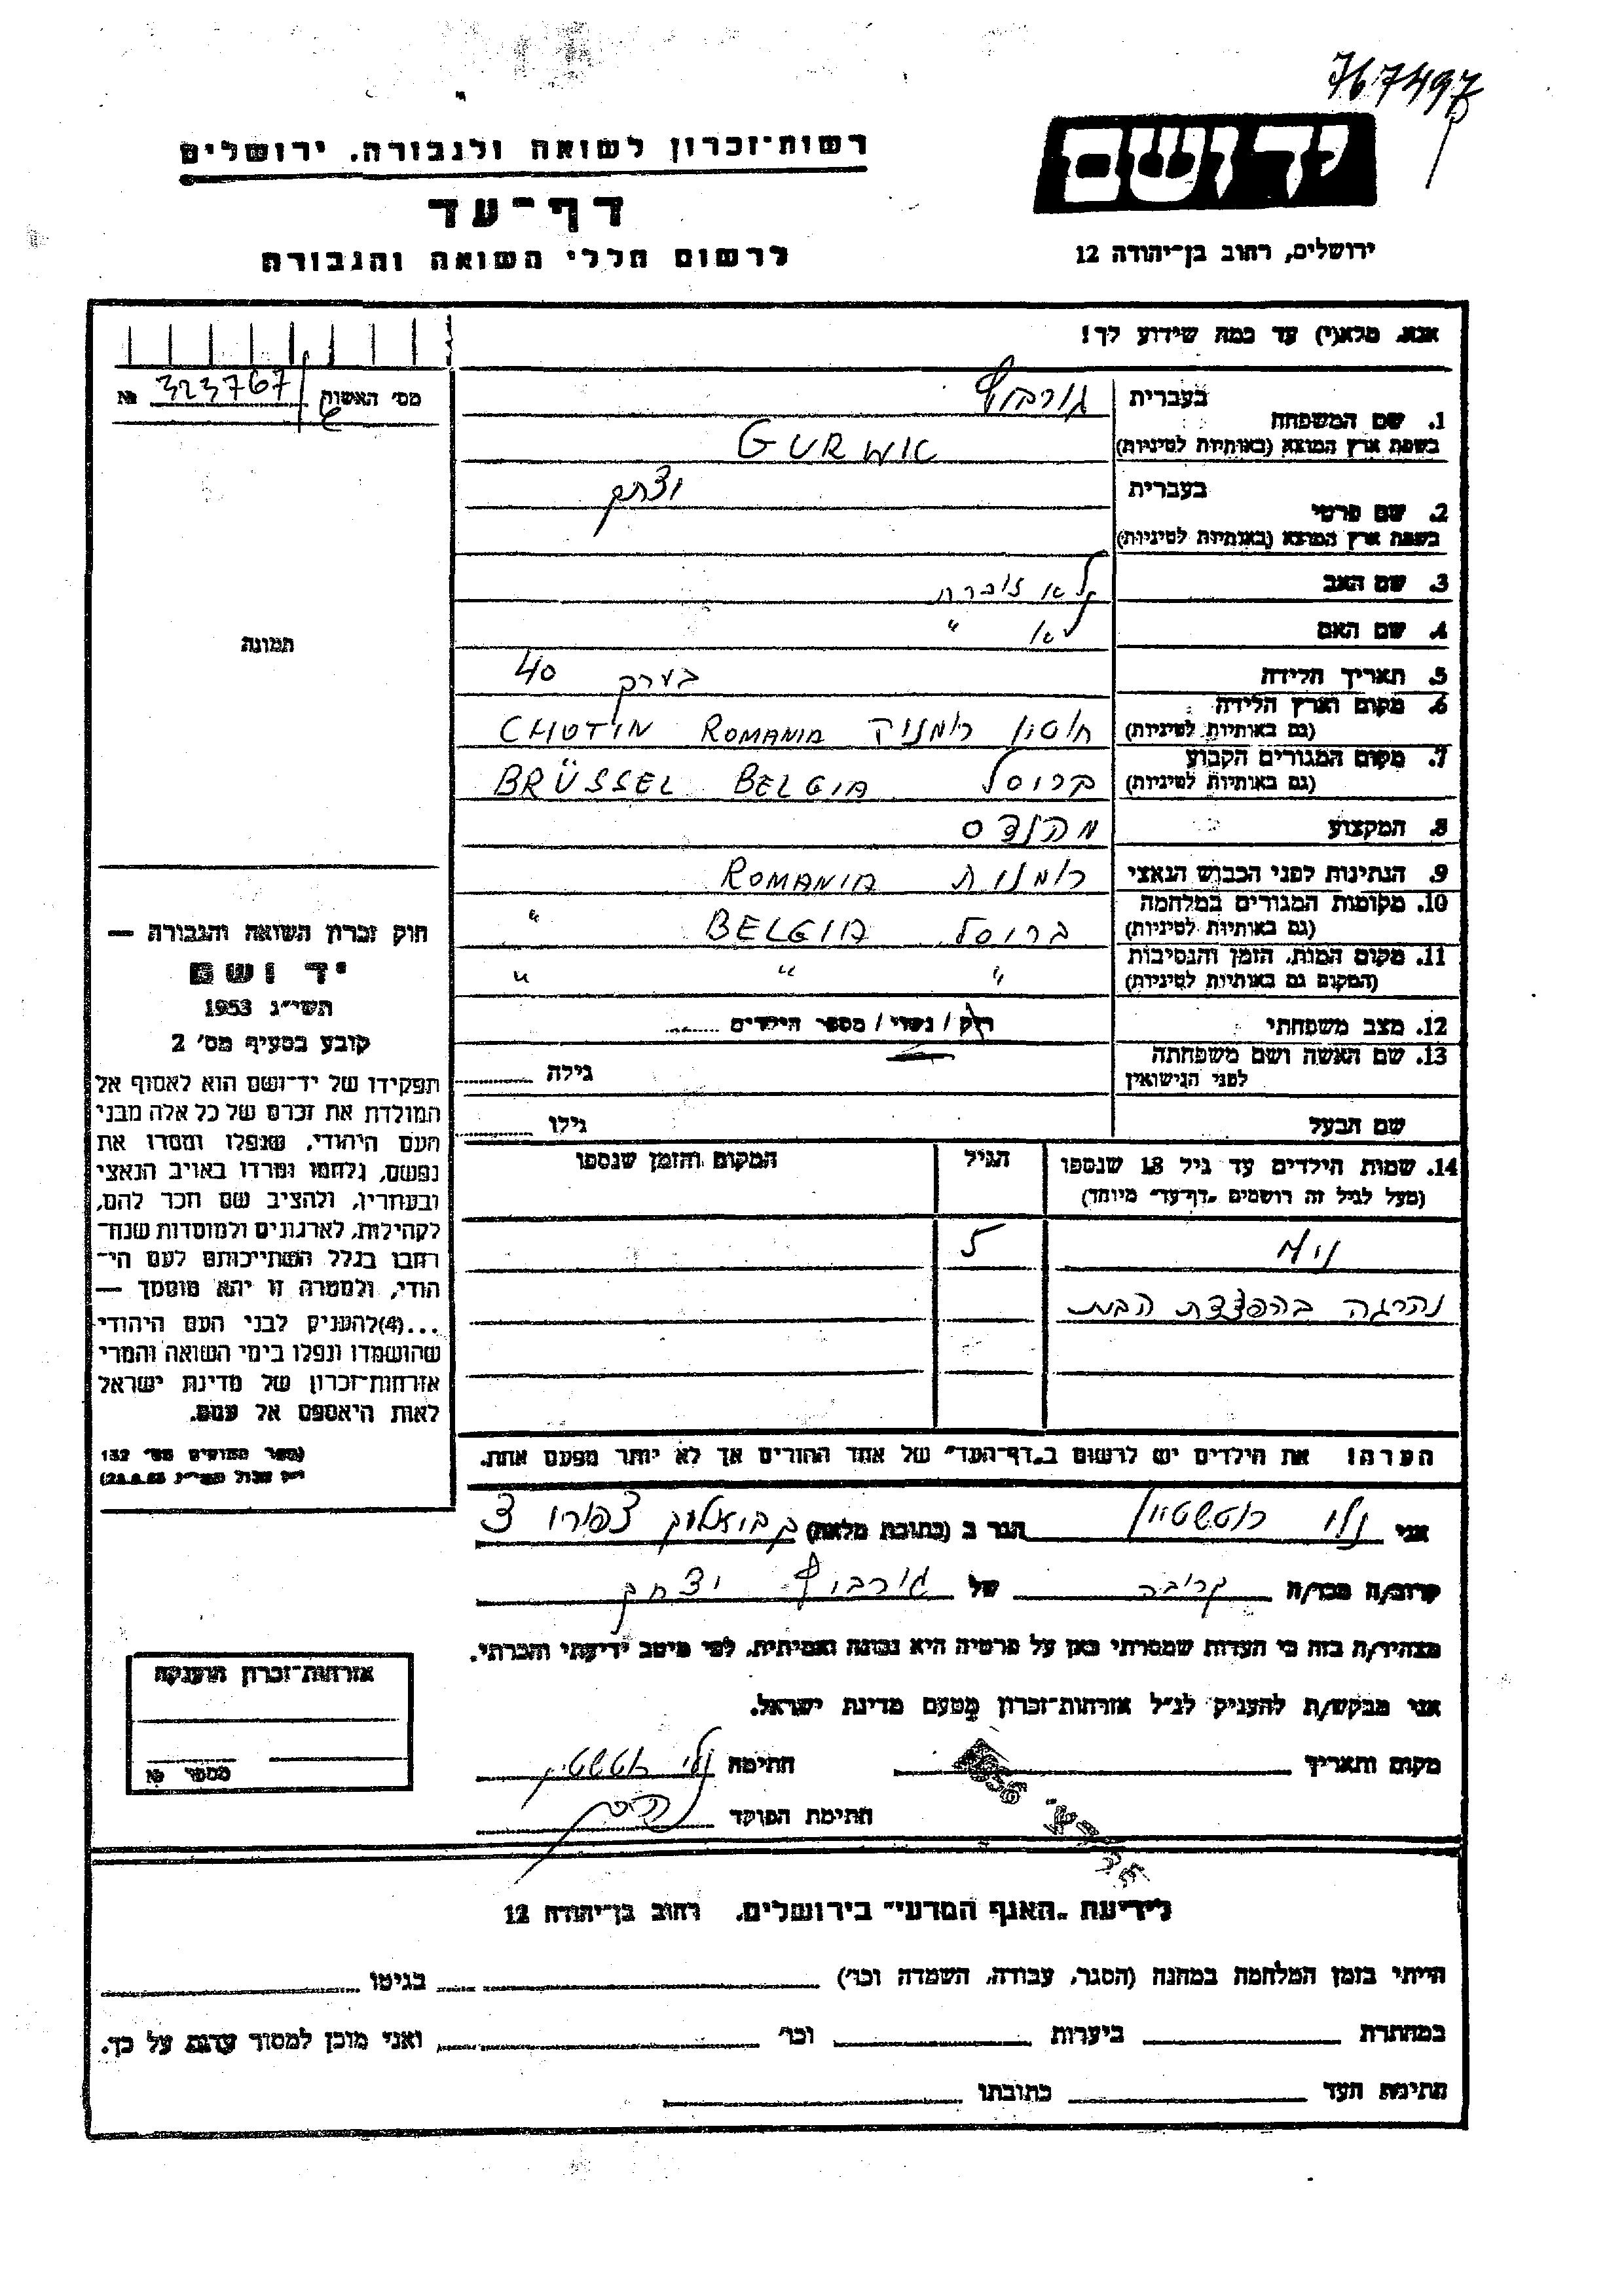 767497
יד ושם
רשות־זכרון לשואה ולגבורה. ירושלים
דף־עד
לרשום חללי השואה והגבורה
ירושלים, רחוב בן־יהודה 12
אנא, מלא(י) עד כמה שידוע לך!
מס׳ האשות 323767 №
תמונה
1. שם המשפחה
בעברית גורביץ
בשפת ארץ המוצא (באותיות לטיניות) GURWIC
2. שם פרטי
בעברית יצחק
בשפת ארץ המוצא (באותיות לטיניות)
3. שם האב לא זוכרת
4. שם האם לא "
5. תאריך הלידה בערך 40
6. מקום וארץ הלידה
(גם באותיות לטיניות) חוטין רומניה CHOTIN ROMANIA
7. מקום המגורים הקבוע
(גם באותיות לטיניות) ברוסל BRÜSSEL BELGIA
8. המקצוע מהנדס
9. הנתינות לפני הכבוש הנאצי רומנית ROMANIA
10. מקומות המגורים במלחמה
(גם באותיות לטיניות) ברוסל BELGIA "
11. מקום המות, הזמן והנסיבות
(המקום גם באותיות לטיניות) " " "
12. מצב משפחתי רוק / נשוי / מספר הילדים
13. שם האשה ושם משפחתה
לפני הנישואין גילה
שם הבעל גילו
14. שמות הילדים עד גיל 18 שנספו
(מעל לגיל זה רושמים „דף־עד” מיוחד)
הגיל
המקום והזמן שנספו
5
נהרגה בהפצצת הבית
הערה! את הילדים יש לרשום ב„דף־העד” של אחד ההורים אך לא יותר מפעם אחת.
חוק זכרון השואה והגבורה —
יד ושם
תשי״ג 1953
קובע בסעיף מס׳ 2
תפקידו של יד־ושם הוא לאסוף אל
המולדת את זכרם של כל אלה מבני
העם היהודי, שנפלו ומסרו את
נפשם, נלחמו ומרדו באויב הנאצי
ובעוזריו, ולהציב שם וזכר להם,
לקהילות, לארגונים ולמוסדות שנח־
רבו בגלל השתייכותם לעם הי־
הודי, ולמטרה זו יהא מוסמך —
...(4) להעניק לבני העם היהודי
שהושמדו ונפלו בימי השואה והמרי
אזרחות־זכרון של מדינת ישראל
לאות היאספם אל עמם.
(ספר החוקים מס׳ 132
אני נלי רוטשטיין הגר ב (כתובת מלאה)
קרוב/ה מכר/ה קרובה של גורביץ יצחק
מצהיר/ה בזה כי העדות שמסרתי כאן על פרטיה היא נכונה ואמיתית, לפי מיטב ידיעתי והכרתי.
אני מבקש/ת להעניק לנ״ל אזרחות־זכרון מטעם מדינת ישראל.
מקום ותאריך חתימה נלי רוטשטיין
חתימת הפוקד
אזרחות־זכרון הוענקה
מספר №
לידיעת „האגף המדעי” בירושלים, רחוב בן־יהודה 12
הייתי בזמן המלחמה במחנה (הסגר, עבודה, השמדה וכו׳) בגיטו
במחתרת ביערות וכו׳ ואני מוכן למסור עדות על כך.
חתימת העד כתובתו